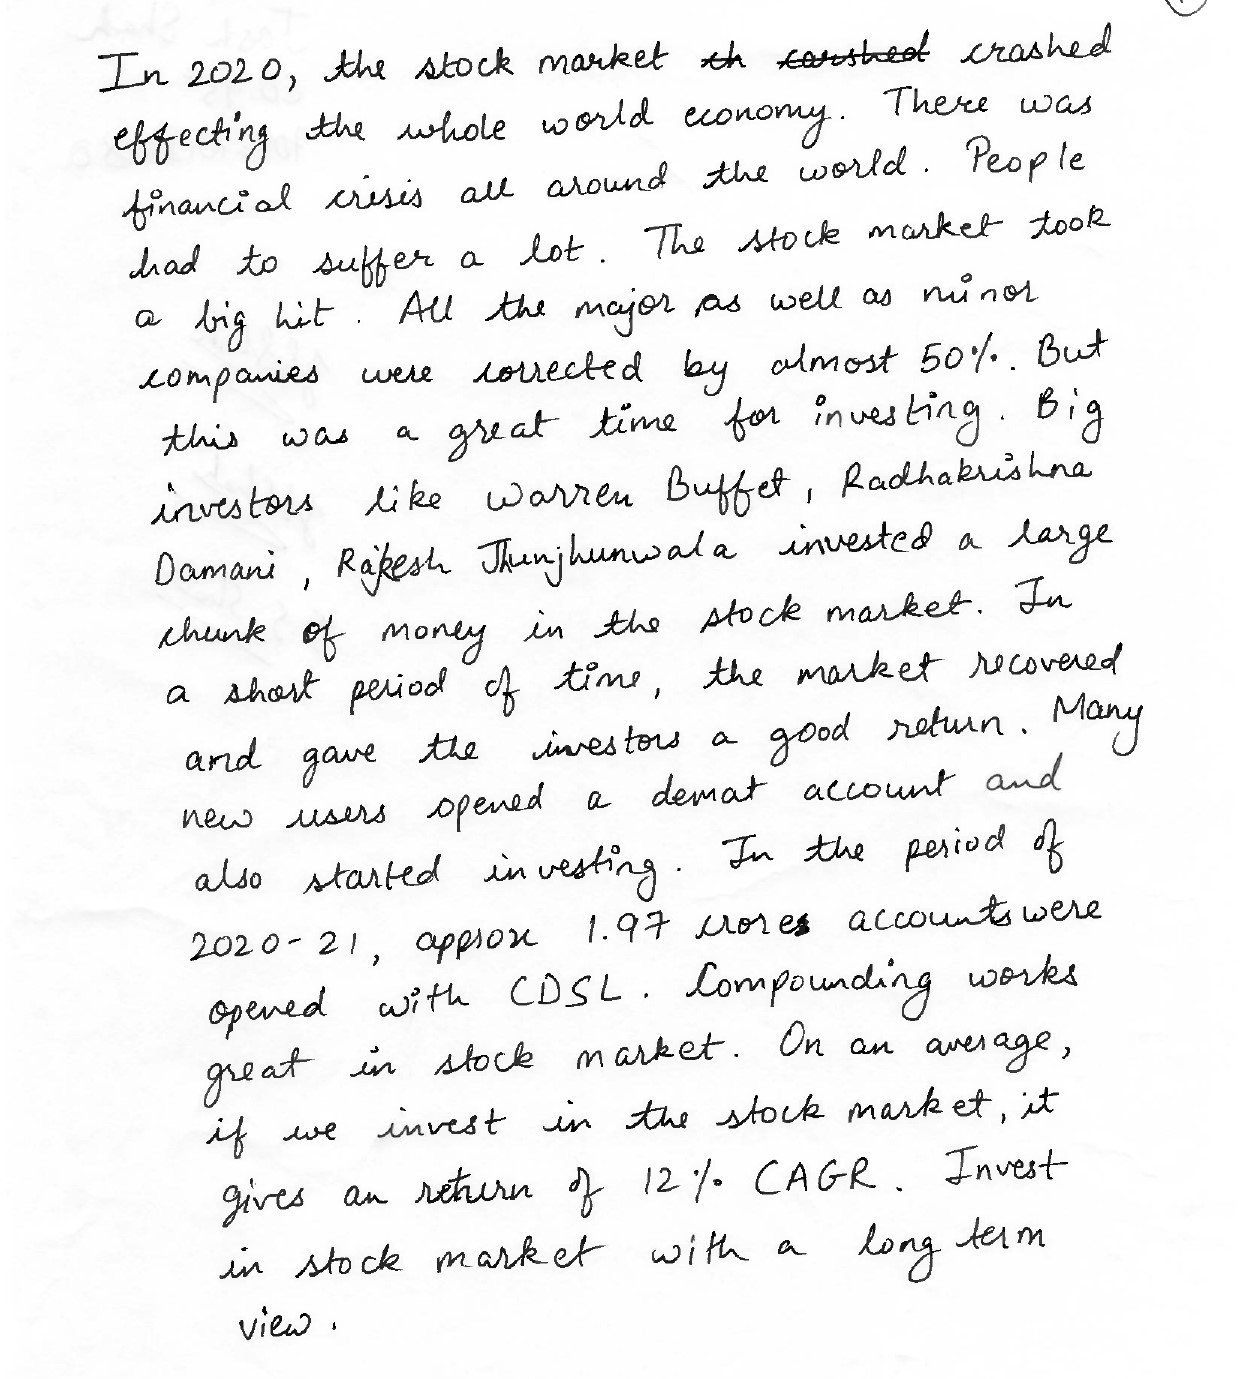 In 2020, the stock market ch carshed crashed
effecting the whole world economy. There was
financial crisis all around the world. People
had to suffer a lot. The stock market took
a big hit. All the major as well as minor
companies were corrected by almost 50%. But
this was a great time for investing. Big
investors like Warren Buffet, Radhakrishna
Damani, Rakesh Jhunjhunwala invested a large
chunk of money in the stock market. In
a short period of time, the market recovered
and gave the investors a good return. Many
new users opened a demat account and
also started investing. In the period of
2020-21, approx 1.97 crores accounts were
opened with CDSL. Compounding works
great in stock market. On an average,
if we invest in the stock market, it
gives an return of 12% CAGR. Invest
in stock market with a long term
view.